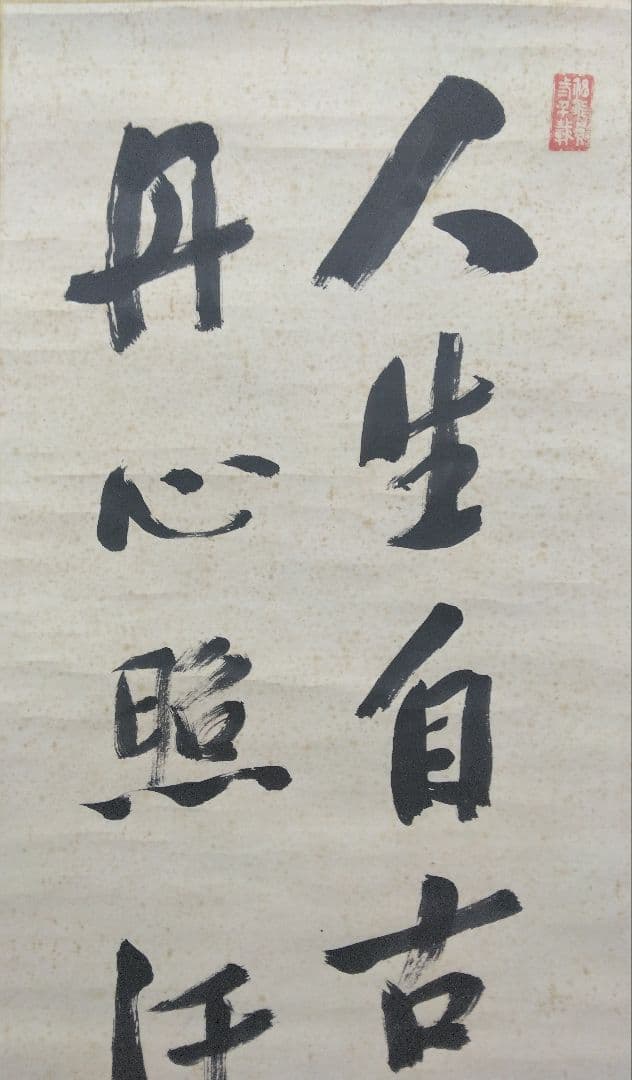 人生自古
丹心照汗